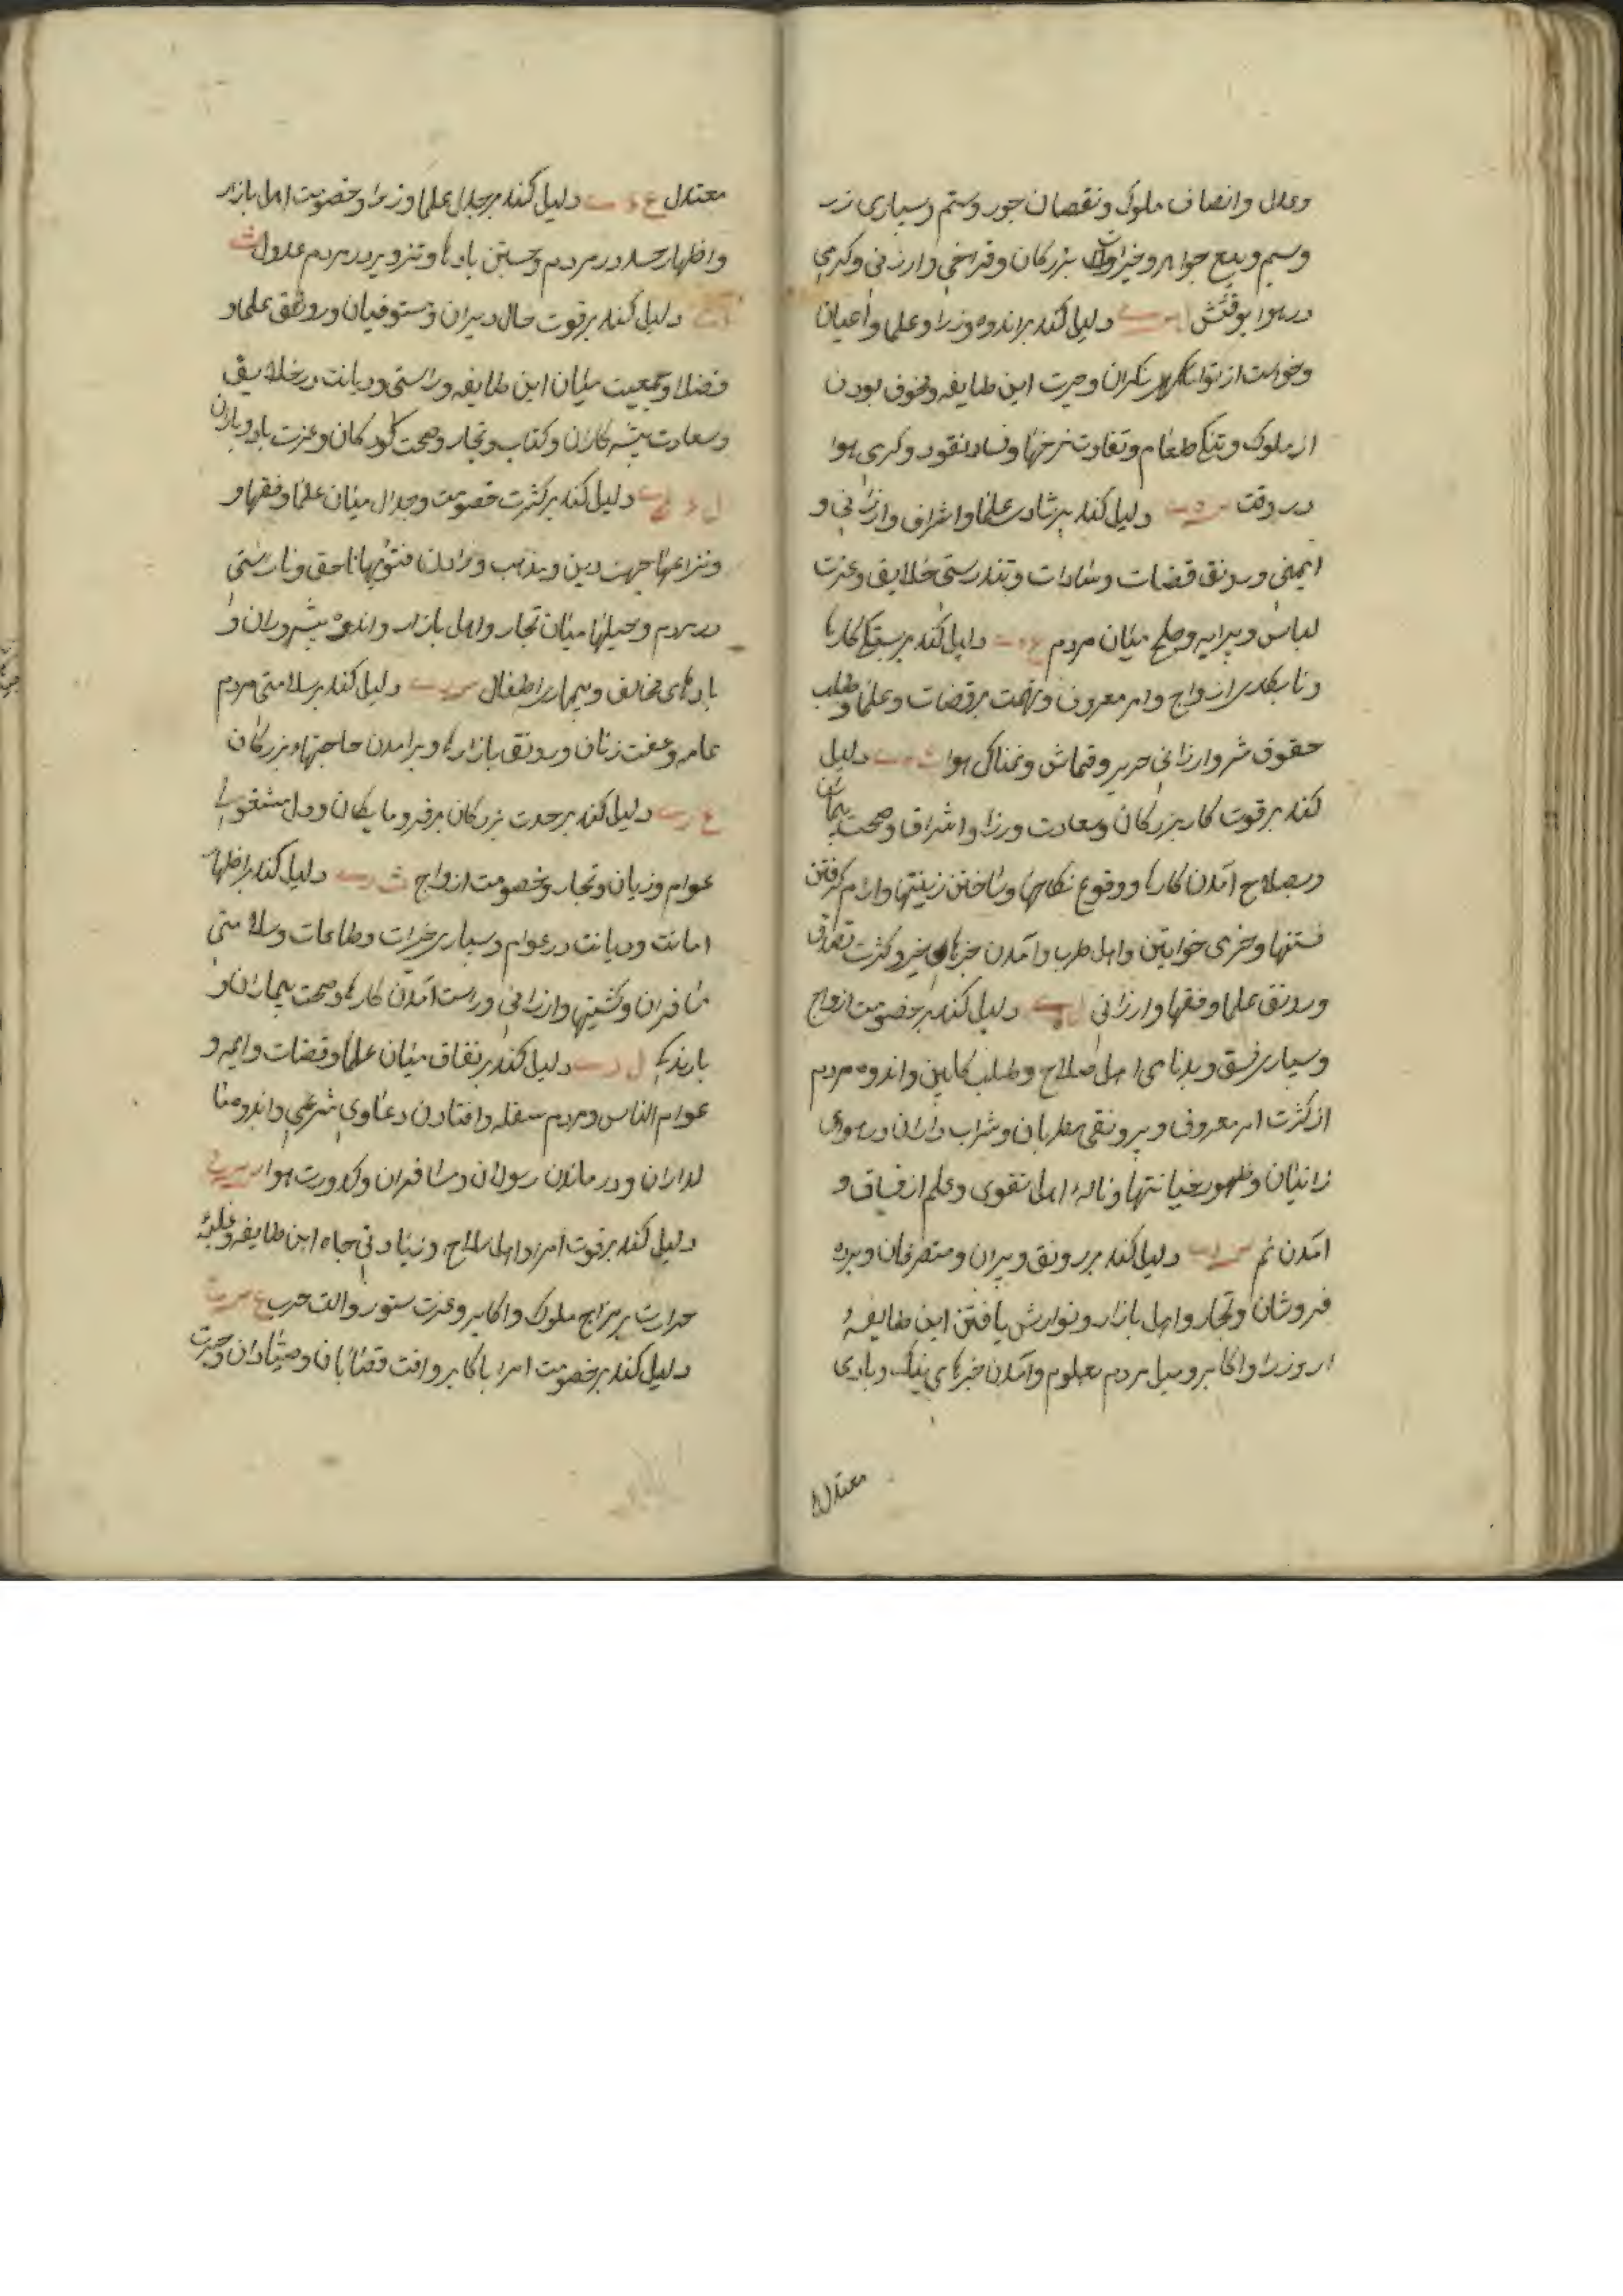 وعدل وانصاف ملوک ونقصان جور وستم وبسیاری زر
وسیم وبیع جواهر وخیرات بزرکان وفراخی وارزنی وکرمی
در هوا بوقتش دلیل کند بر اندوه وزرا وعلما واعیان
وخواست از توانکران وحیرت این طایفه وخوف بودن
از ملوک وتنکی طعام وتفاوت نرخها وفساد نقود وکرمی هوا
در وقت س د ب دلیل کند بر شادی علما واشراف وارزانی و
ایمنی ورونق قضات وسادات وتندرستی خلایق وعزت
لباس وپیرایه وصلح میان مردم ع د ب دلیل کند بر سبکی کارها
ونابکاری ازواج وامر معروف وتهمت بر قضات وعلما وطلب
حقوق شر وارزانی حریر وقماش ونمناکی هوا ث د ب دلیل
کند بر قوت کار بزرکان وسعادت وزرا واشراف وصحت بیماران
وبصلاح آمدن کارها ووقوع نکاحها وساختن زینتها وآرام کرفتن
فتنها وخرمی خواتین واهل طرب وآمدن خبرهای خیر وکثرت تصدق
ورونق علما وفقها وارزانی دلیل کند بر خصومت ازواج
وبسیاری فسق وبدنامی اهل صلاح وطلب کابین واندوه مردم
از کثرت امر معروف وبیرونقی مطربان وشراب داران ورسوای
زانیان وظهور خیانتها وناله اهل تقوی وعلم از فساق و
امدن نم دلیل کند بر رونق دبیران ومتصرفان وبرده
فروشان وتجار واهل بازار ونوازش یافتن این طایفه
از وزرا واکابر ومیل مردم بعلوم وآمدن خبرهای نیک وبادی
معتدل
معتدل ع د ب دلیل کند بر جدل علما وزرا وخصومت اهل بازار
واظهار حسد در مردم وجستن بادها وتزویر در مردم عدول ث
دلیل کند بر قوت حال دبیران ومستوفیان ورونق علما و
فضلا وجمعیت میان این طایفه وراستی ودیانت در خلایق
وسعادت پیشه کاران وکتاب وتجار وصحت کودکان وعزت باد وباران
دلیل کند بر کثرت خصومت وجدال میان علما وفقها و
ونزاعها جهت دین ومذهب ودادن فتویها ناحق وناراستی
در مردم وحیلها میان تجار واهل بازار واندوه پیشه‌وران و
بادهای مخالف وبیماری اطفال دلیل کند بر سلامتی مردم
عامه وعفت زنان ورونق بازارها وبرآمدن حاجتها از بزرکان
ع ر ب دلیل کند بر حدت بزرکان بر فرومایکان ودل مشغولی
عوام وزیان وتجار وخصومت ازواج ث ر ب دلیل کند بر اظهار
امانت ودیانت در عوام وبسیاری خیرات وطاعات وسلامتی
مسافران وکشتیها وارزانی وراست آمدن کارها وصحت بیماران و
بارندکی ل ر ب دلیل کند بر نفاق میان علما وقضات وایمه و
عوام الناس ومردم سفله وافتادن دعاوی شرعی واندوه
ودرماندن رسولان ومسافران وکدورت هوا
دلیل کند بر قوت امرا واهل سلاح وزیادتی جاه این طایفه وغلبه
حرارت بر مزاج ملوک واکابر وعزت ستور والت حرب
دلیل کند بر خصومت امرا با اکابر وافت قصابان وصیادان وحیرت